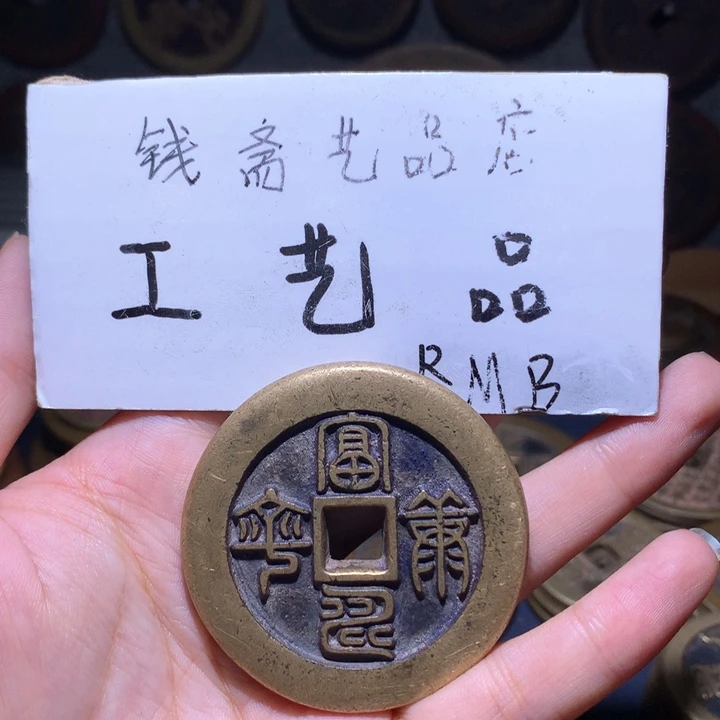 钱斋艺品店
工艺品
RMB
富